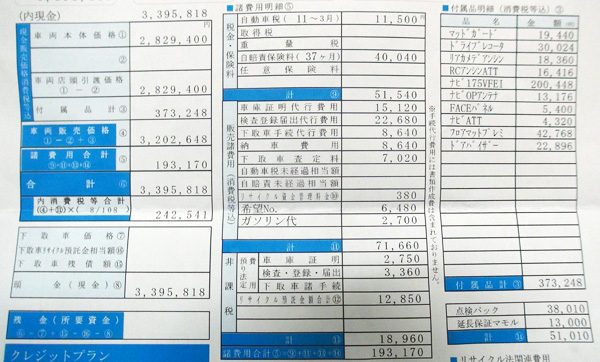 (内現金) 3,395,818
円
現金販売価格消費税等込
車両本体価格① 2,829,400
②
車両店頭引渡価格 ①－② 2,829,400
付属品計③ 373,248
車両販売価格④ ①－②＋③ 3,202,648
諸費用合計⑤ 193,170
合計⑥ 3,395,818
内消費税等合計 8/108) 242,541
下取車価格⑦
下取車リサイクル預託金相当額
下取車残債額
頭金(現金)⑧ 3,395,818
残金(所要資金)
クレジットプラン
諸費用明細⑤
税金・保険料
自動車税(11～3月) 11,500円
取得税
重量税
自賠責保険料(37ヶ月) 40,040
任意保険料
計⑨ 51,540
販売諸費用(消費税等込)
車庫証明代行費用 15,120
検査登録届出代行費用 22,680
下取車手続代行費用 8,640
納車費用 8,640
下取車査定料 7,020
自動車税未経過相当額
自賠責未経過相当額
リサイクル資金管理料金 380
希望No. 6,480
ガソリン代 2,700
計⑪ 71,660
非課税
預り法定費用
車庫証明 2,750
検査・登録・届出 3,360
下取車諸手続
リサイクル預託金額合計⑫ 12,850
計⑬ 18,960
諸費用合計 193,170
※手続代行費用には書類作成費は含まれておりません。
付属品明細(消費税等込)③
品名 金額
マッドガード 19,440
ドライブレコーダ 30,024
リアカメラアンシン 18,360
RCアンシンATT 16,416
ナビ175VFEI 200,448
ナビOPアンテナ 13,176
FACEパネル 5,400
ナビATT 4,320
フロアマットプレミ 42,768
ドアバイザー 22,896
付属品計③ 373,248
点検パック 38,010
延長保証マモル 13,000
計⑭ 51,010
リサイクル法関連費用